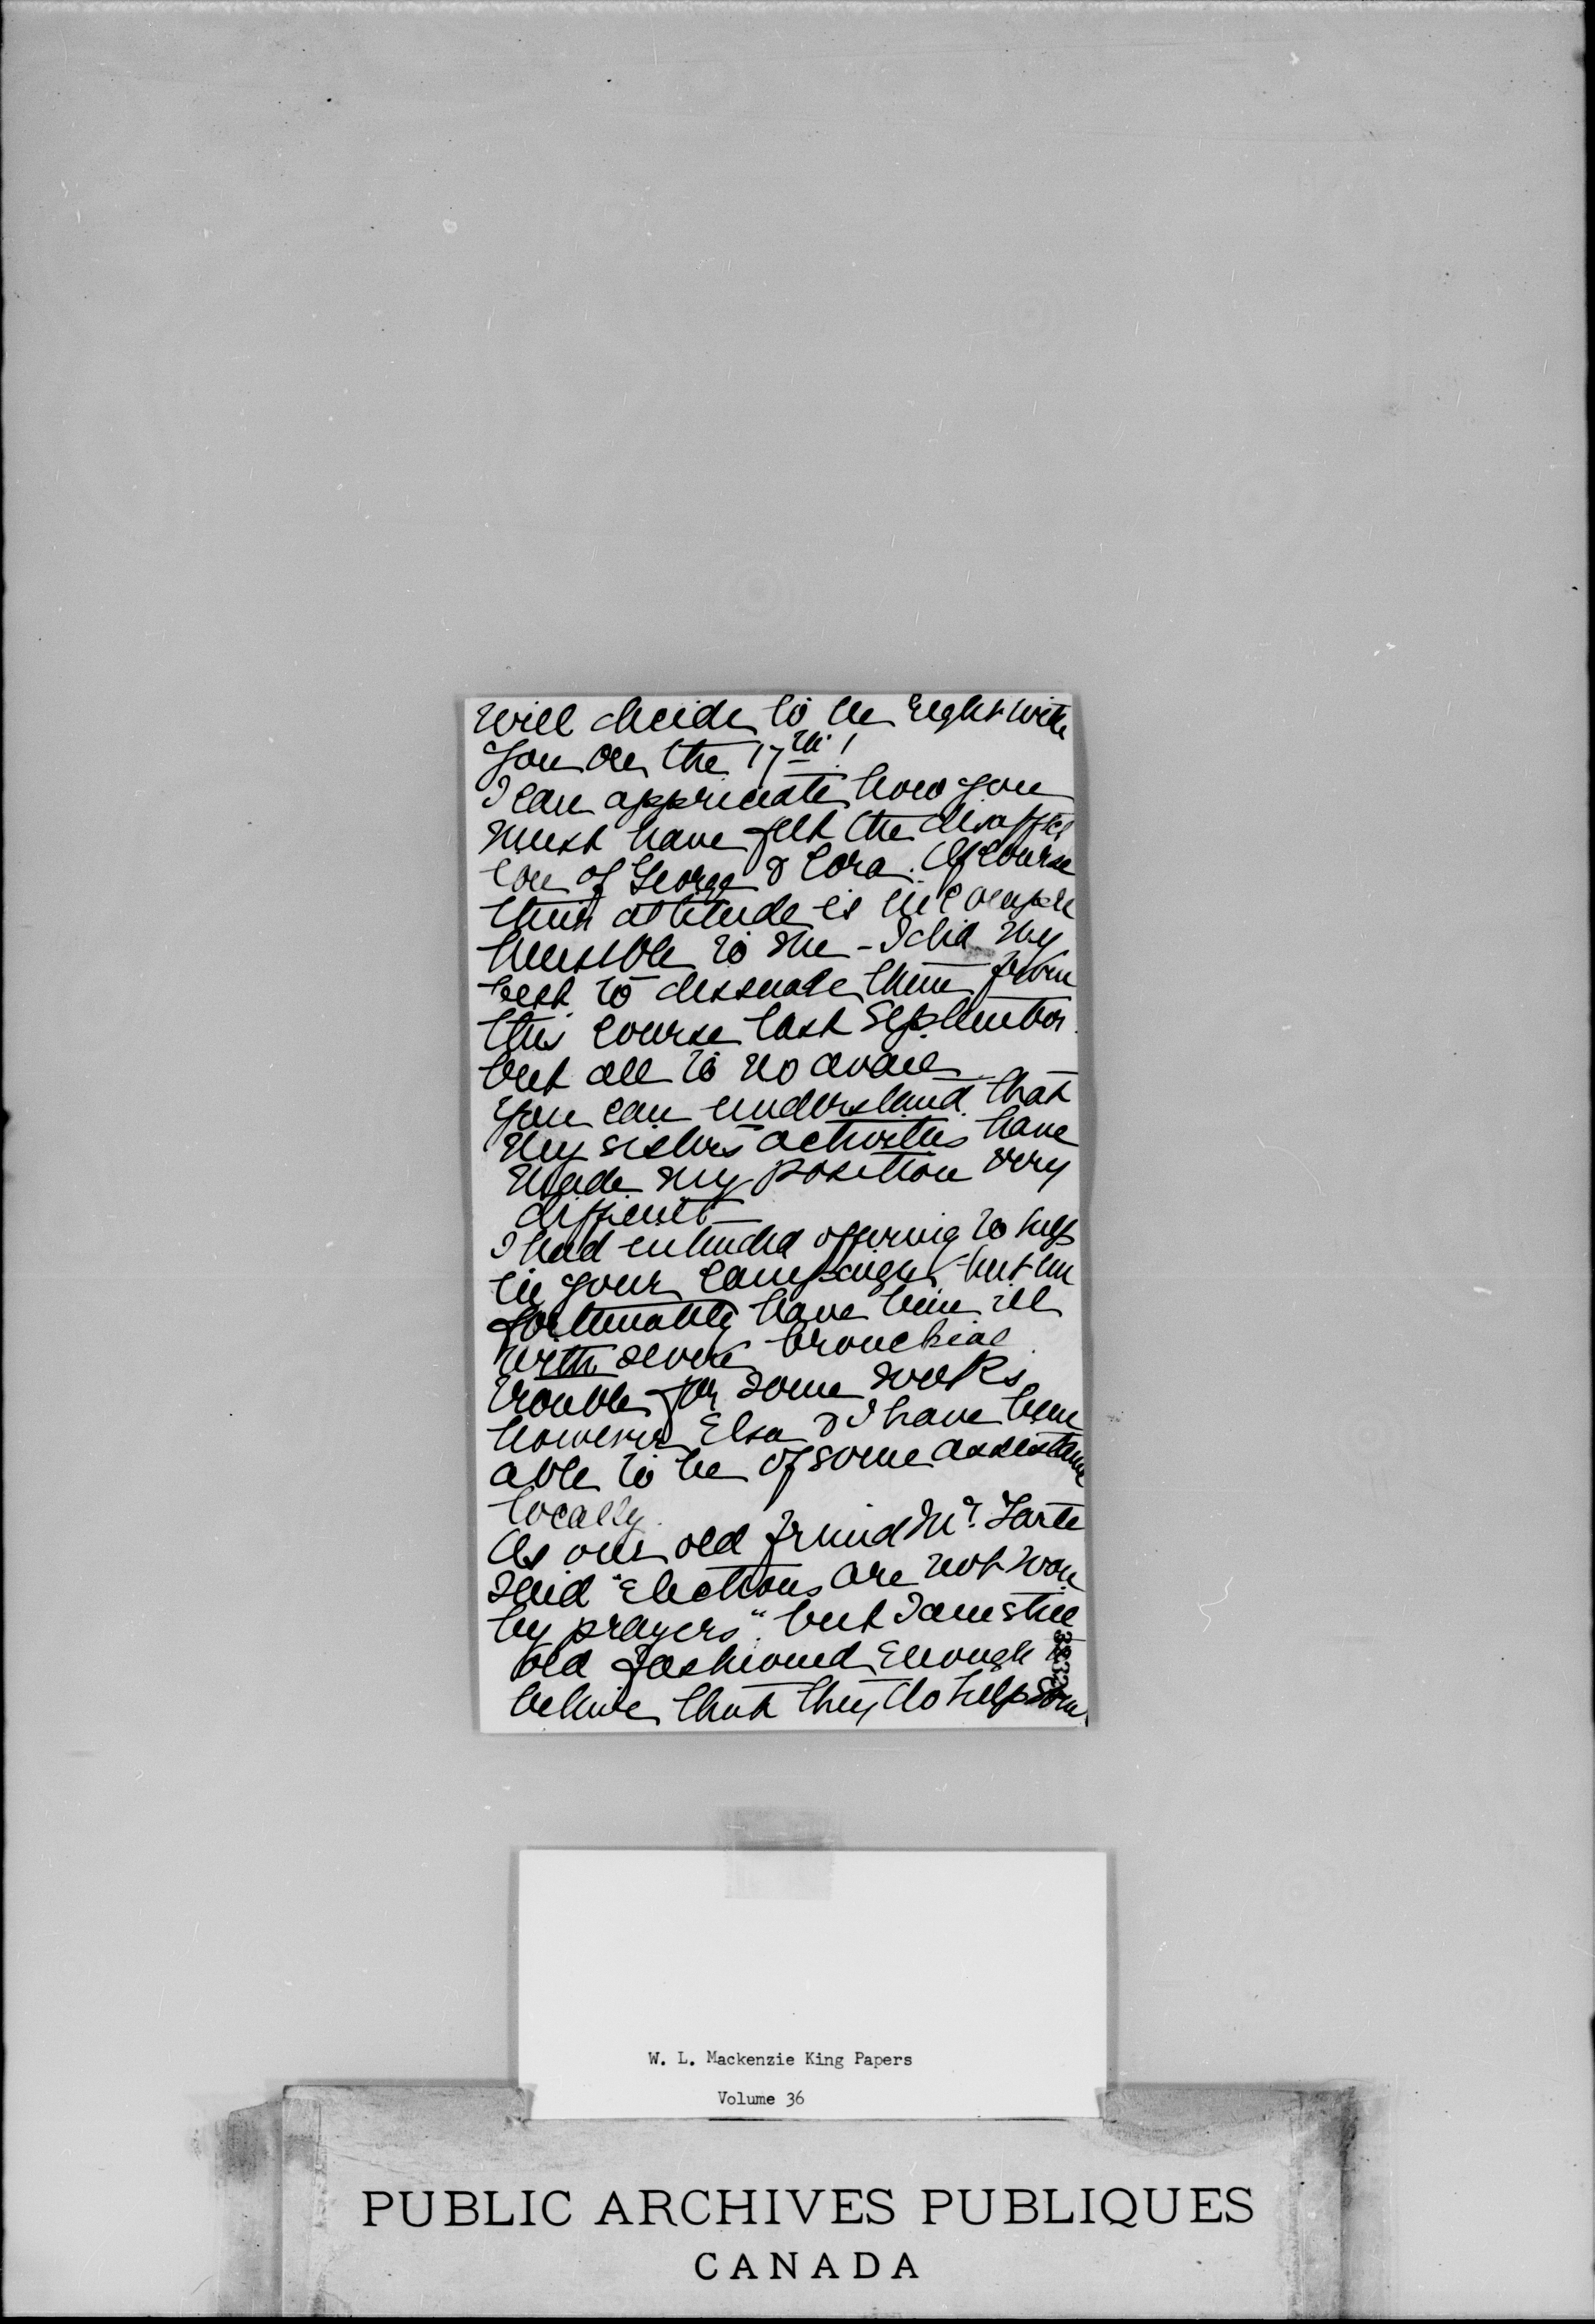 will decide to be right with
you on the 17th!
I can appreciate how you
must have felt the disaffec
tion of George & Cora. Of course
their attitude is incompre
hensible to me - I did my
best to dissuade them from
this course last September
but all to no avail
You can understand that
my sisters activities have
made my position very
difficult -
I had intended offering to help
in your campaign - but un
fortunately have been ill
with severe bronchial
trouble for some weeks
however Elsa & I have been
able to be of some assistance
locally.
As our old friend Mr. Tarte
said "Elections are not won
by prayers" but I am still
old fashioned enough to
believe that they do help some
W. L. Mackenzie King Papers
Volume 36
PUBLIC ARCHIVES PUBLIQUES
CANADA